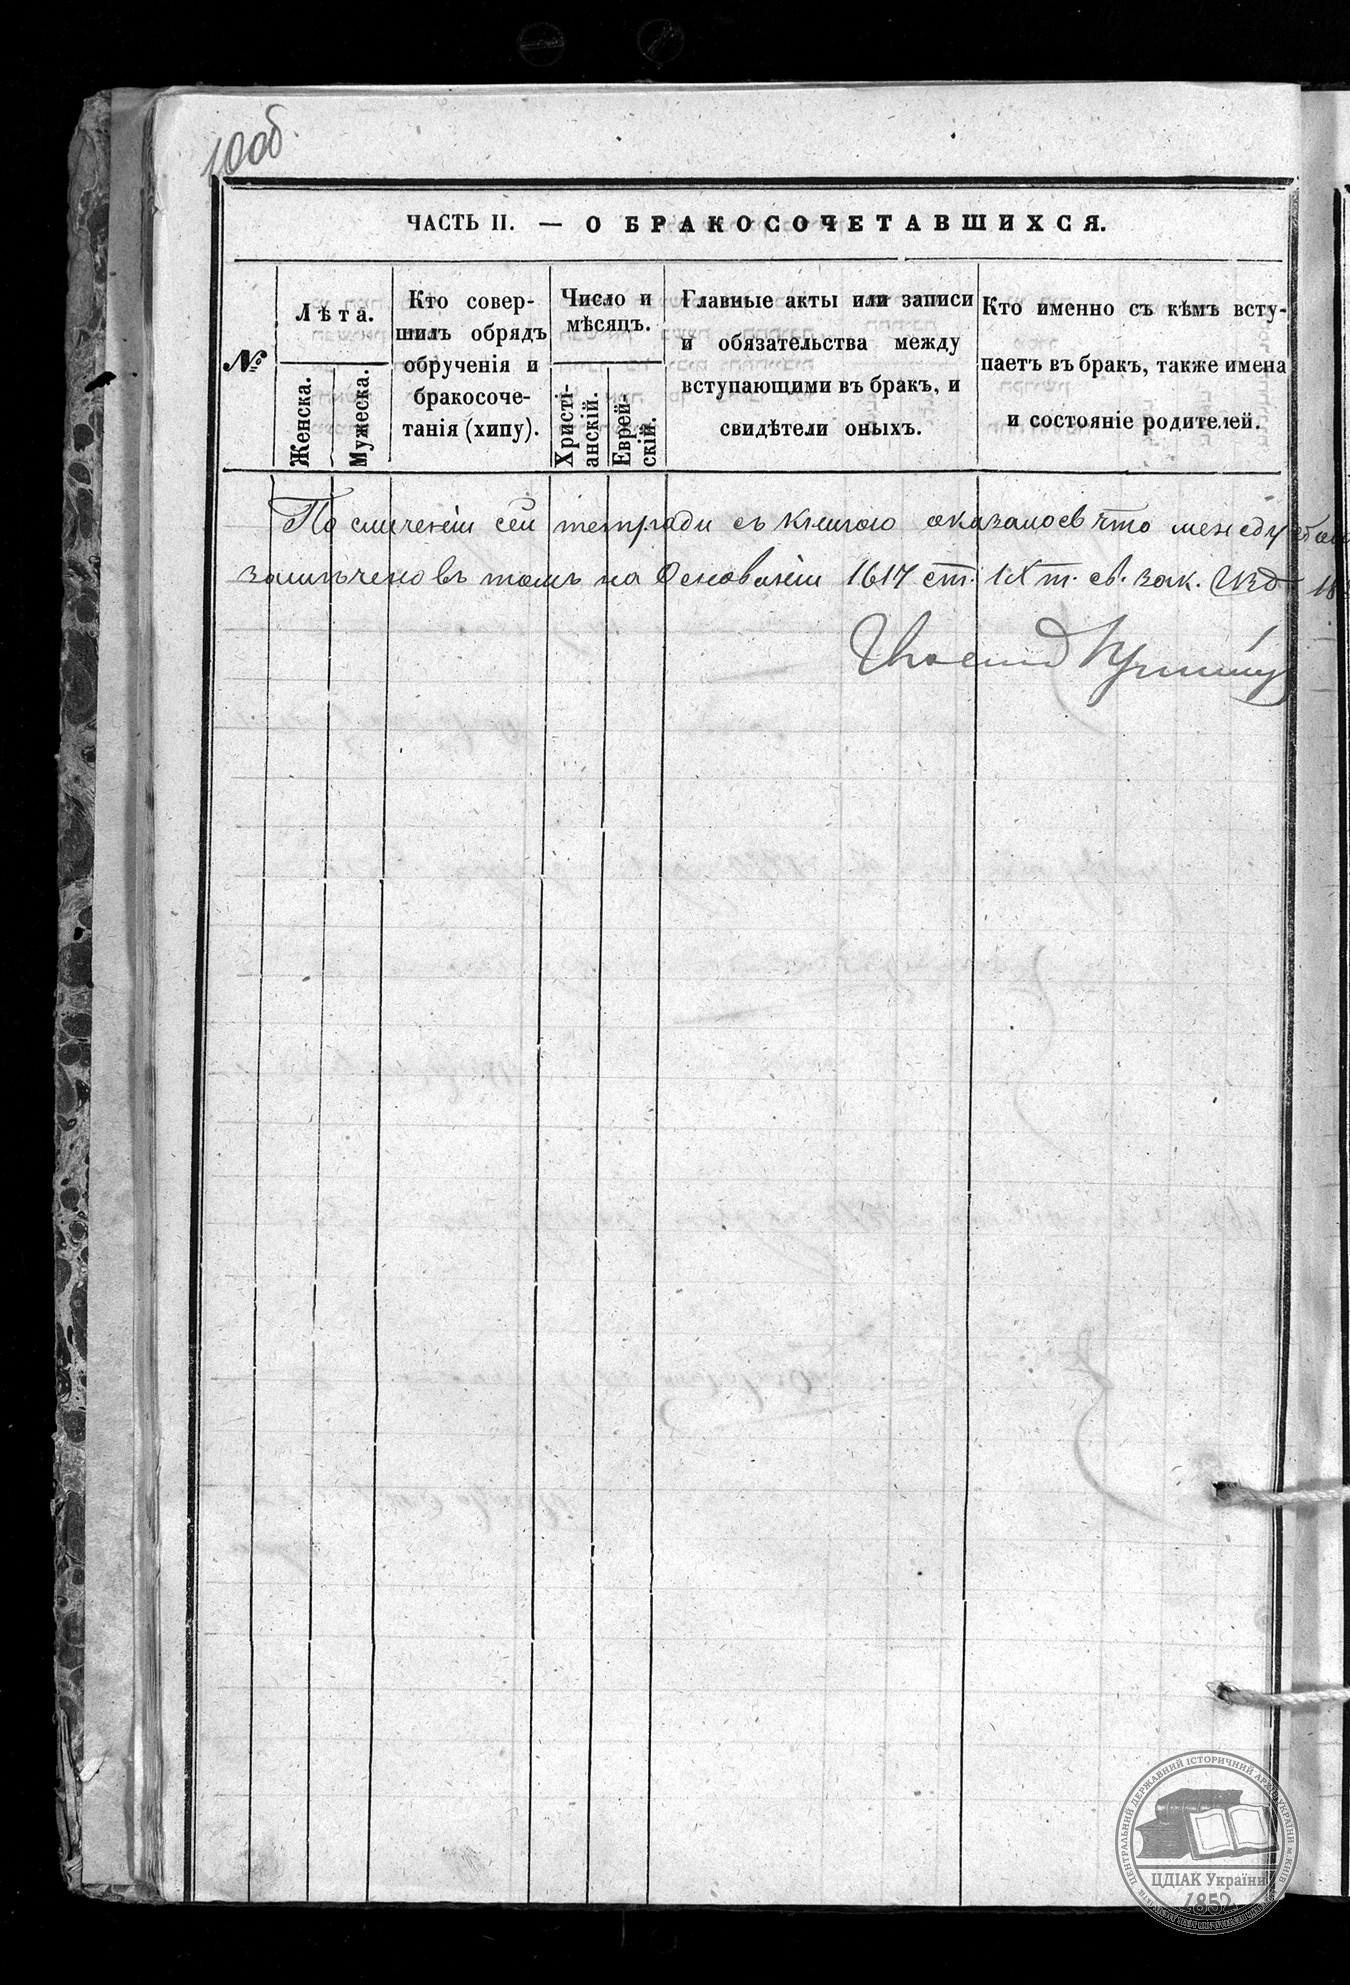 10об.
ЧАСТЬ II. — О БРАКОСОЧЕТАВШИХСЯ.
№
Лѣта.
Женска.
Мужеска.
Кто совер-
шилъ обрядъ
обрученія и
бракосоче-
танія (хипу).
Число и
мѣсяцъ.
Христі-
анскій.
Еврей-
скій.
Главные акты или записи
и обязательства между
вступающими въ брак, и
свидѣтели оныхъ.
Кто именно съ кѣмъ всту-
паетъ въ бракъ, также имена
и состояніе родителей.
По сличеніи сей тетради съ книгою оказалось что между
на Основаніи 1617 ст. IX т. св. зак. Изд. 18
ЦЕНТРАЛЬНИЙ ДЕРЖАВНИЙ ІСТОРИЧНИЙ АРХІВ УКРАЇНИ м. КИЇВ
ЦДІАК України
1852